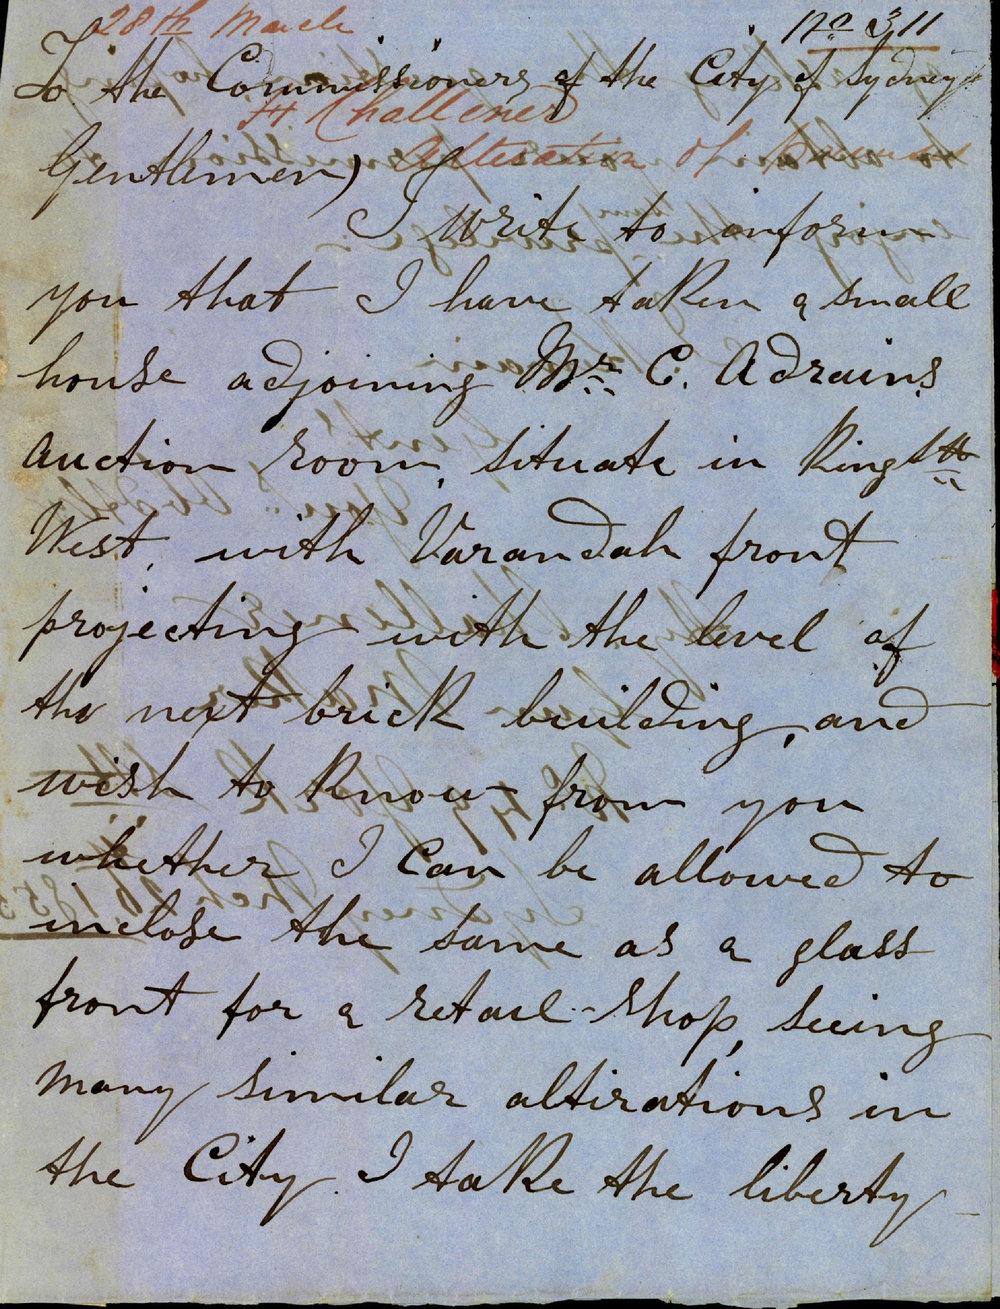 28th March
No 311
To the Commissioners of the City of Sydney
H Challener
Alteration of Premises
Gentlemen,
I write to inform
you that I have taken a small
house adjoining Mr C. Adrains
Auction room, situate in King St
West, with Varandah front
projecting with the level of
the next brick building, and
wish to know from you
whether I can be allowed to
inclose the same as a glass
front for a retail-shop, seeing
many similar altirations in
the City. I take the liberty